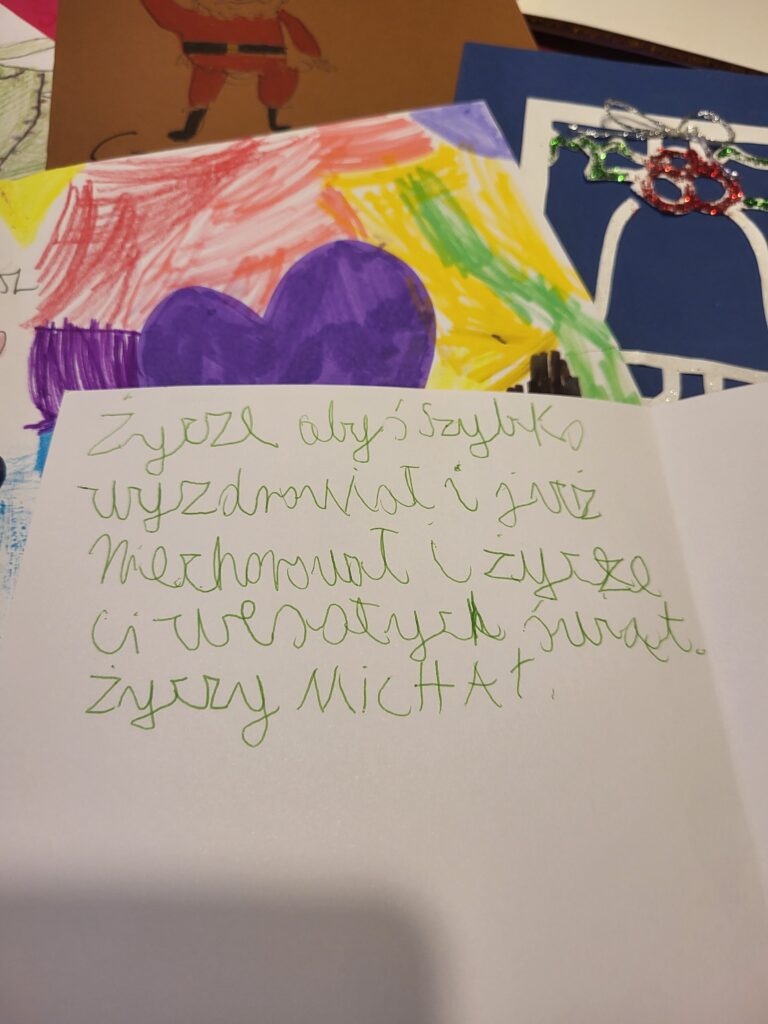 Życze abyś szybko
wyzdrowiał i już
niechorował i życze
ci wesołych świąt.
życzy MiCHAł.